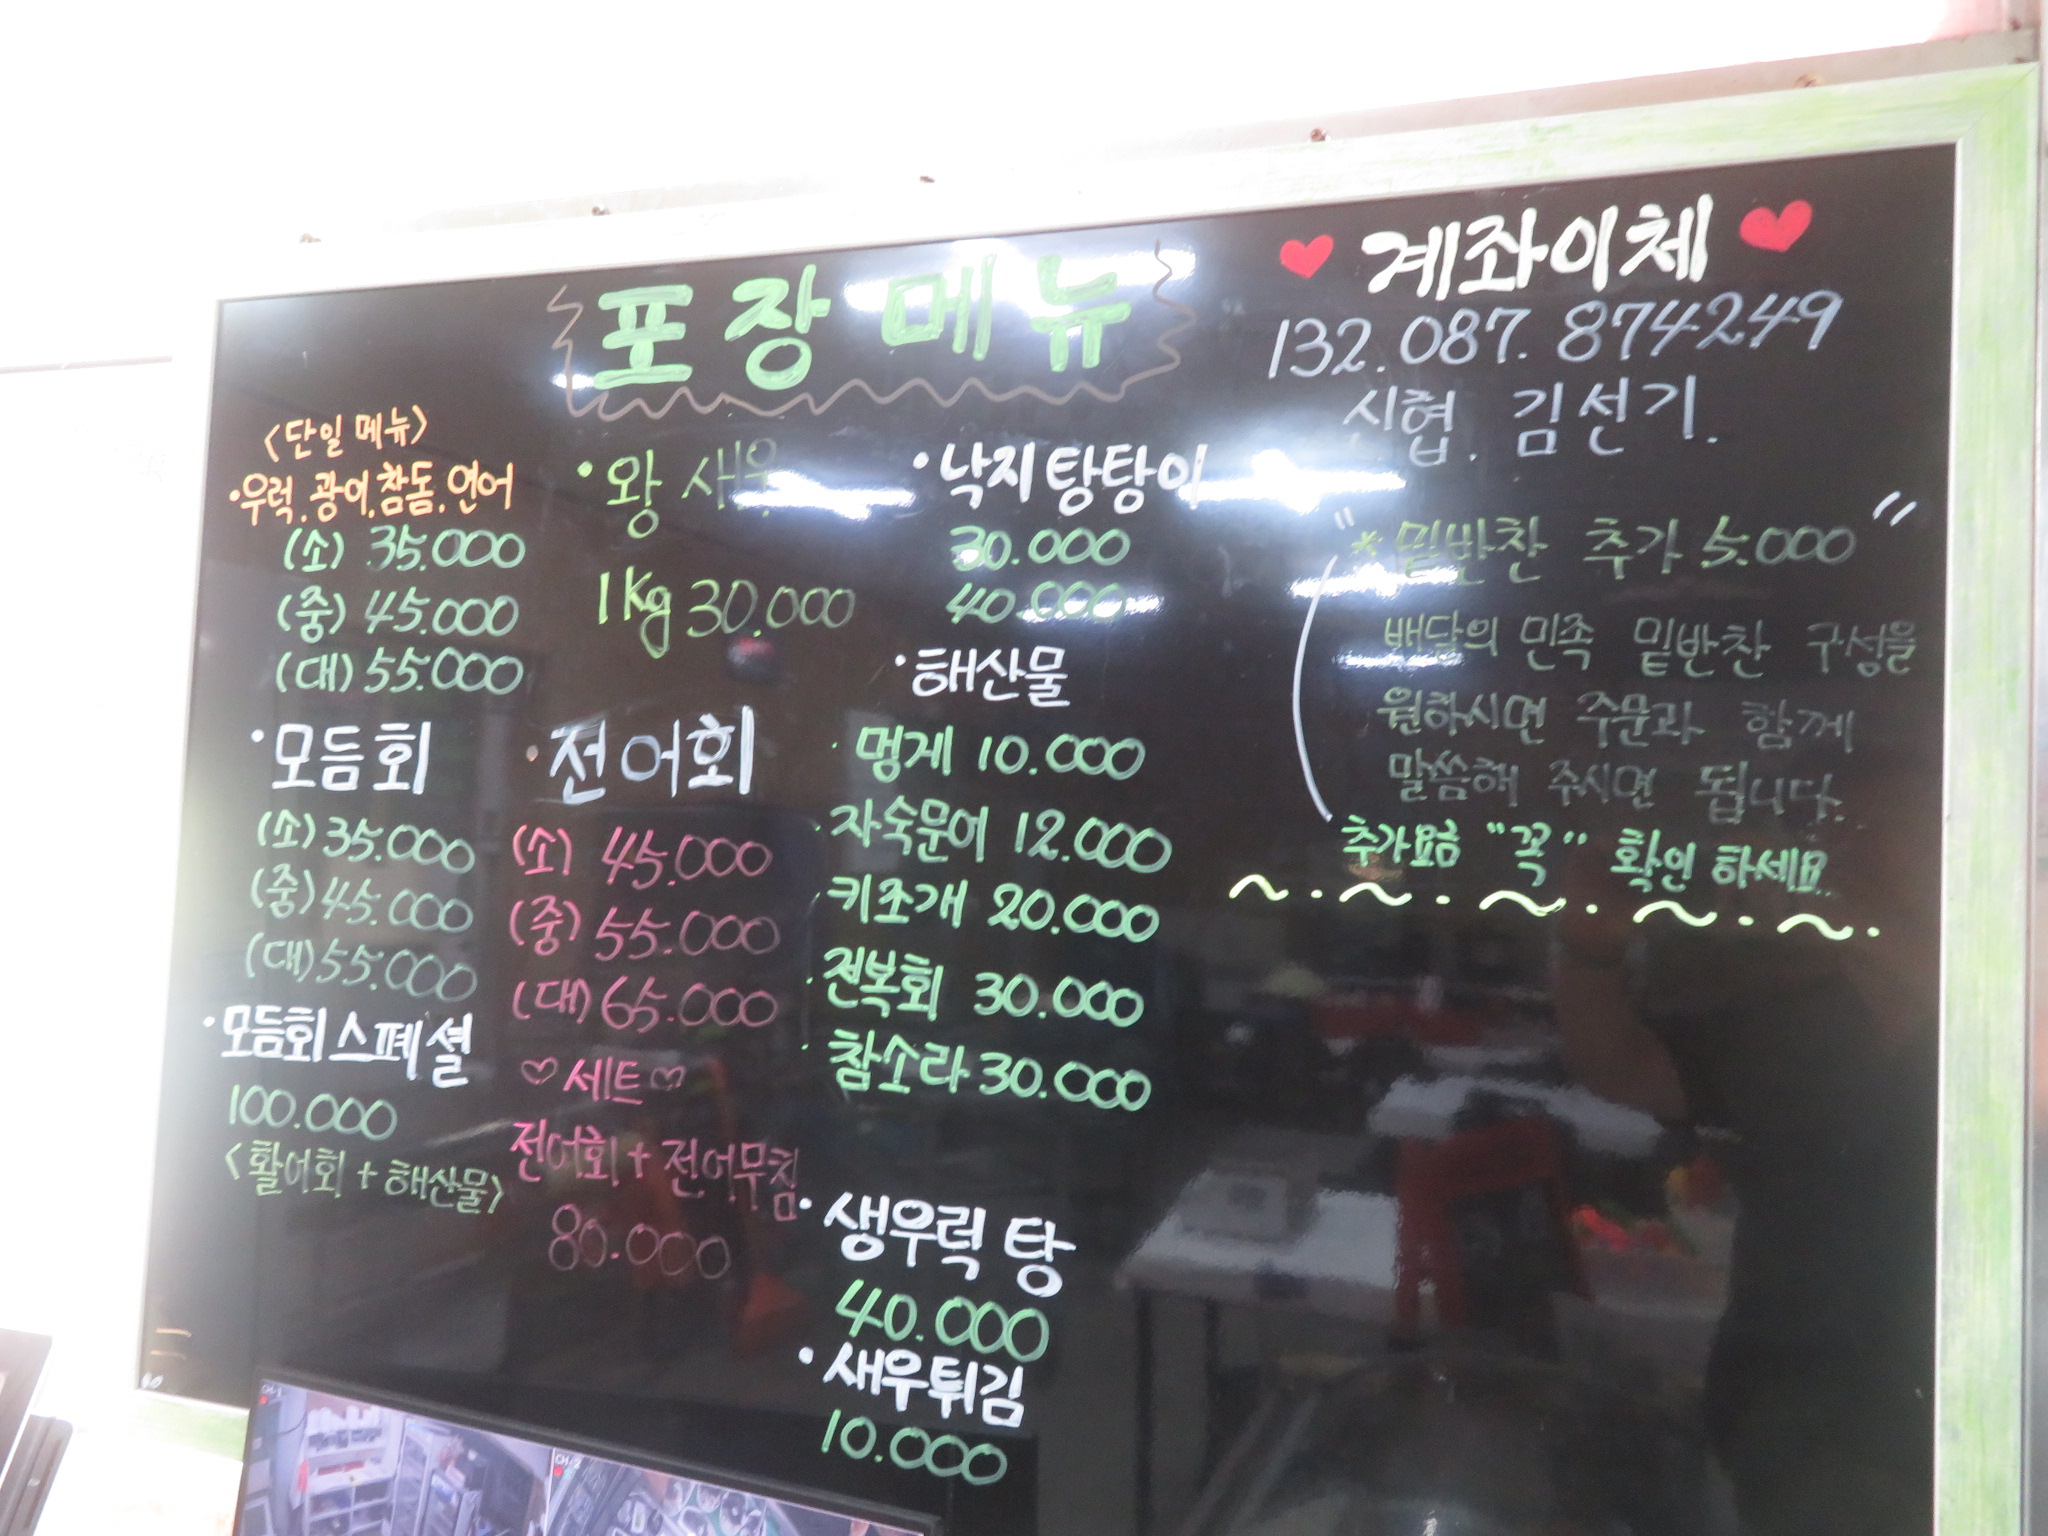 포장메뉴
<단일 메뉴>
·우럭.광어.참돔.연어
(소) 35.000
(중) 45.000
(대) 55.000
·모듬회
(소) 35.000
(중) 45.000
(대) 55.000
·모듬회스페셜
100.000
<활어회 + 해산물>
·왕새우
1kg 30.000
·전어회
(소) 45.000
(중) 55.000
(대) 65.000
♡세트♡
전어회 + 전어무침
80.000
·낙지탕탕이
30.000
40.000
·해산물
·멍게 10.000
·자숙문어 12.000
·키조개 20.000
·전복회 30.000
·참소라 30.000
·생우럭탕
40.000
·새우튀김
10.000
♥ 계좌이체 ♥
132.087.874249
신협. 김선기.
"*밑반찬 추가 5.000"
배달의 민족 밑반찬 구성을
원하시면 주문과 함께
말씀해 주시면 됩니다.
추가요금 "꼭" 확인 하세요.
~.~.~.~.~.
CH-1
CH-2